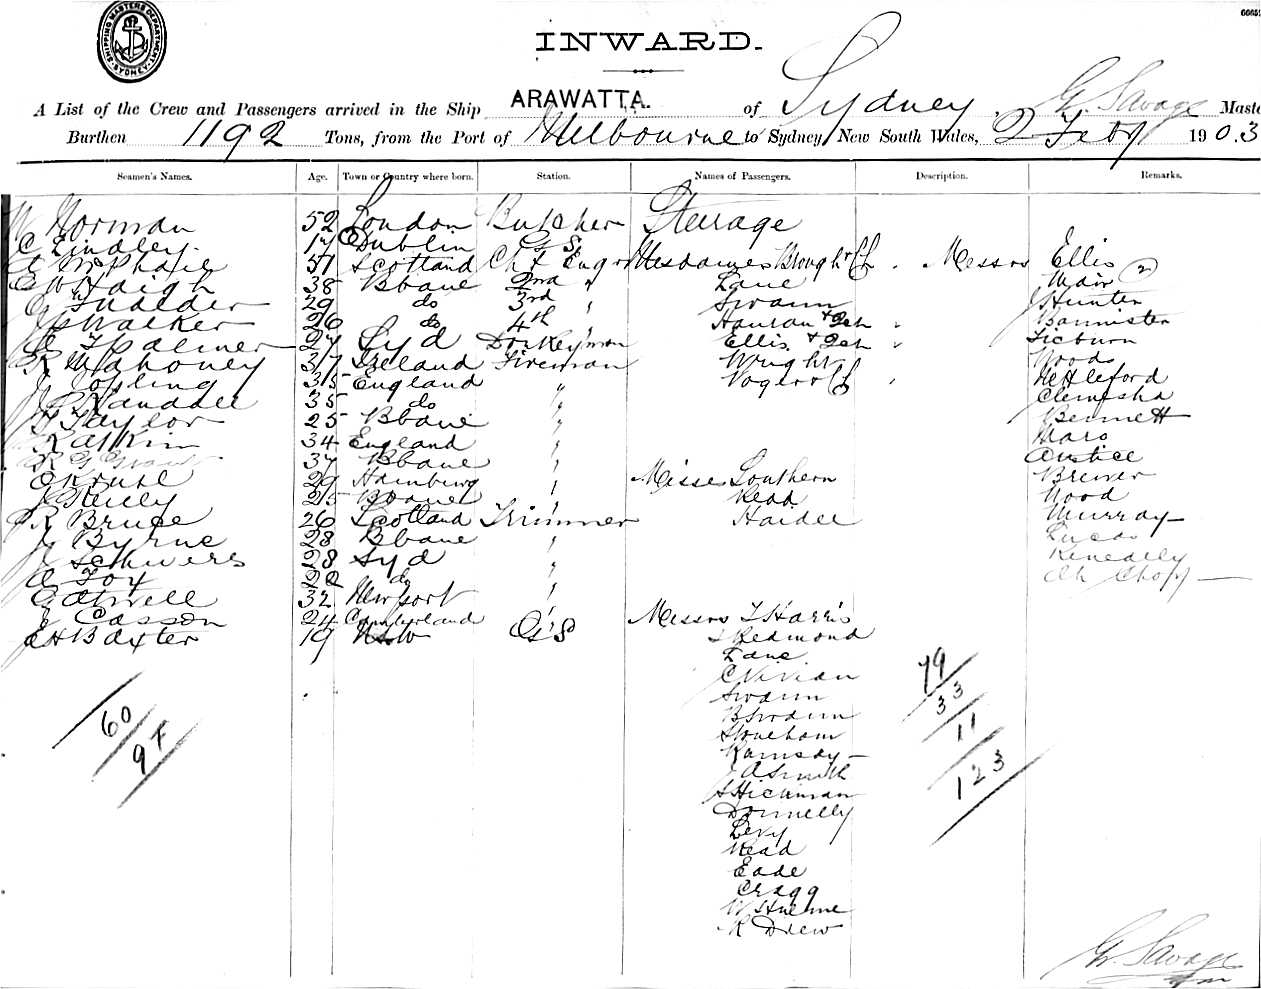 66651
SHIPPING MASTERS DEPARTMENT SYDNEY
INWARD.
A List of the Crew and Passengers arrived in the Ship ARAWATTA. of Sydney, G. Savage Maste
Burthen 1192 Tons, from the Port of Melbourne to Sydney, New South Wales, 2 Feby 1903
Seamen's Names. Age. Town or Country where born. Station. Names of Passengers. Description. Remarks.
W Norman 52 London Butcher Steerage
C Lindley 17 Dublin G S
McPhail 51 Scotland Chf Engr Mesdames Brough & Ch Messrs Ellis
Haigh 38 Bbane 2nd " Lane Mair 2
29 do 3rd " Swann J Hunter
J Walker 26 do 4th " Hanran & Bannister
Palmer 27 Syd Donkeyman Ellis & Ticburn
R Mahoney 37 Ireland Fireman Wright Woods
J Jopling 35 England " Ch Nettleford
J Randall 35 do " Clemesha
Taylor 25 Bbane " Bennett
R 34 England " Mars
R G Grant 37 Bbane " Anstice
O Kruse 29 Hamburg " Misses Southern Brewer
J Reilly 25 Bbane " Read Wood
R Bruce 26 Scotland Trimmer Haidee Murray
J Byrne 28 Bbane " Lucas
J Schwers 28 Syd " Kenedelly
A Foy 22 do " Ah Chopy
Atwell 32 Newport "
J Casson 24 Cumberland " Messrs T Harris
J H Baxter 19 NSW G S Redmond
Lane
C Vivian
Swann
B Swann
Stoneham
Ramsay
J A Smith
S Hickman
Donnelly
Levy
Read
Eade
Cragg
W Hulme
R Drew
79
33
11
123
60
97
G. Savage